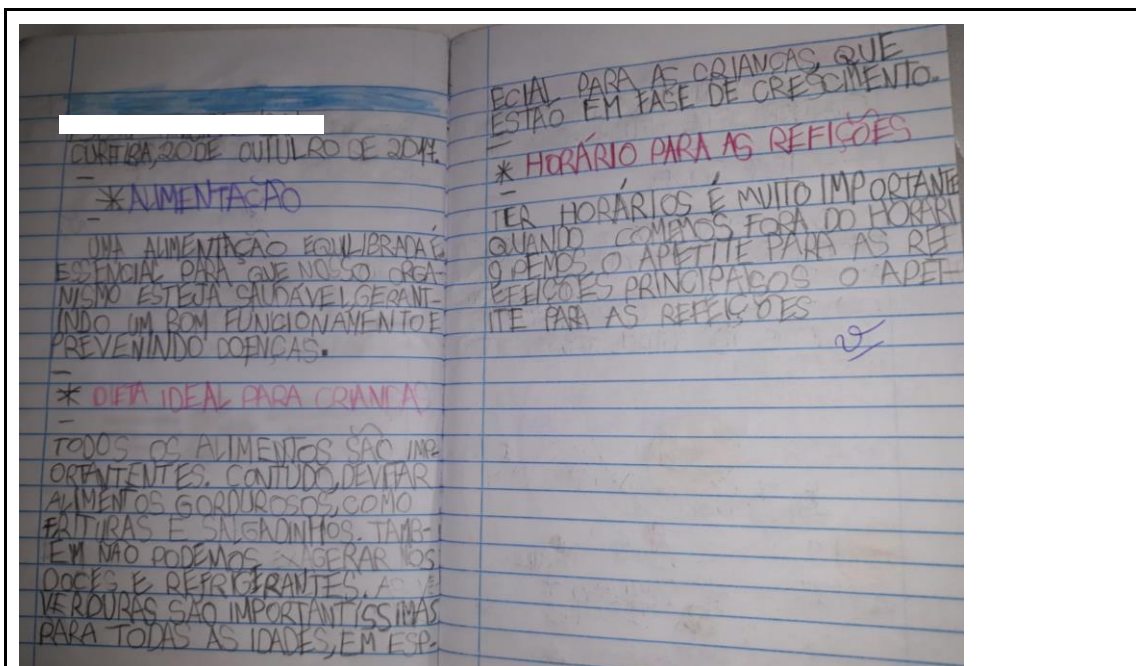 CURITIBA, 20 DE OUTULRO DE 2017.
* ALIMENTAÇÃO
UMA ALIMENTAÇÃO EQUILIBRADA É
ESSENCIAL PARA QUE NOSSO ORGA-
NISMO ESTEJA SAUDÁVEL, GERANT-
INDO UM BOM FUNCIONAMENTO E
PREVENINDO DOENÇAS.
* DIETA IDEAL PARA CRIANÇA
TODOS OS ALIMENTOS SÃO IMP-
ORTANTENTES. CONTUDO, DEVITAR
ALIMENTOS GORDUROSOS, COMO
FRITURAS E SALGADINHOS. TAMB-
EM NÃO PODEMOS XAGERAR NOS
DOCES E REFRIGERANTES. AS
VERDURAS SÃO IMPORTANTÍSSIMAS
PARA TODAS AS IDADES, EM ESP-
ECIAL PARA AS CRIANÇAS, QUE
ESTÃO EM FASE DE CRESCIMENTO.
* HORÁRIO PARA AS REFIÇÕES
TER HORÁRIOS É MUITO IMPORTANTE
QUANDO COMEMOS FORA DO HORARI
O PEMOS O APETITE PARA AS RE
EFEIÇÕES PRINCIPAIS OS O APET-
ITE PARA AS REFEIÇÕES